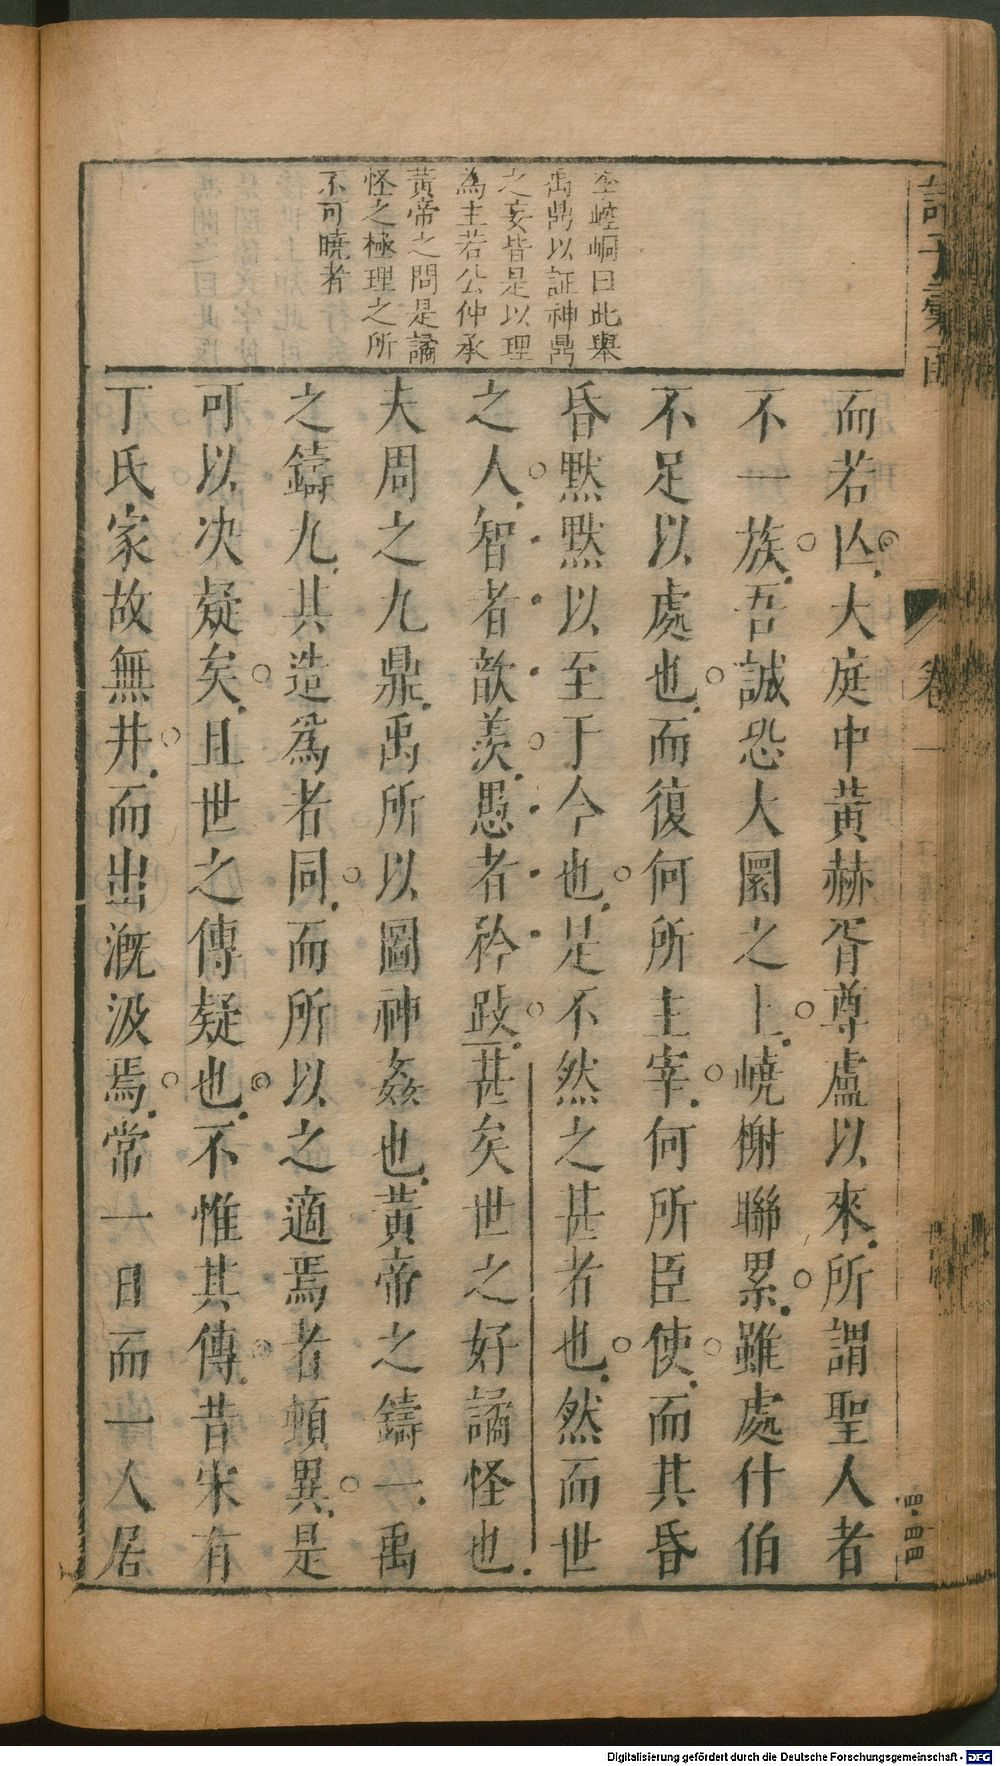 諸子彙函
卷一
空峒曰此舉
禹鼎以証神鼎
之妄皆是以理
為主若公仲承
黃帝之問是譎
怪之極理之所
不可曉者
而若凶大庭中黃赫胥尊盧以來所謂聖人者
不一族吾誠恐大圜之上嶢榭聯累雖處什伯
不足以處也而復何所主宰何所臣使而其昏
昏默默以至于今也是不然之甚者也然而世
之人智者歆羡愚者矜跂甚矣世之好譎怪也
夫周之九鼎禹所以圖神姦也黃帝之鑄一禹
之鑄九其造爲者同而所以之適焉者頓異是
可以决疑矣且世之傳疑也不惟其傳昔宋有
丁氏家故無井而出漑汲焉常一日而一人居
Digitalisierung gefördert durch die Deutsche Forschungsgemeinschaft - DFG